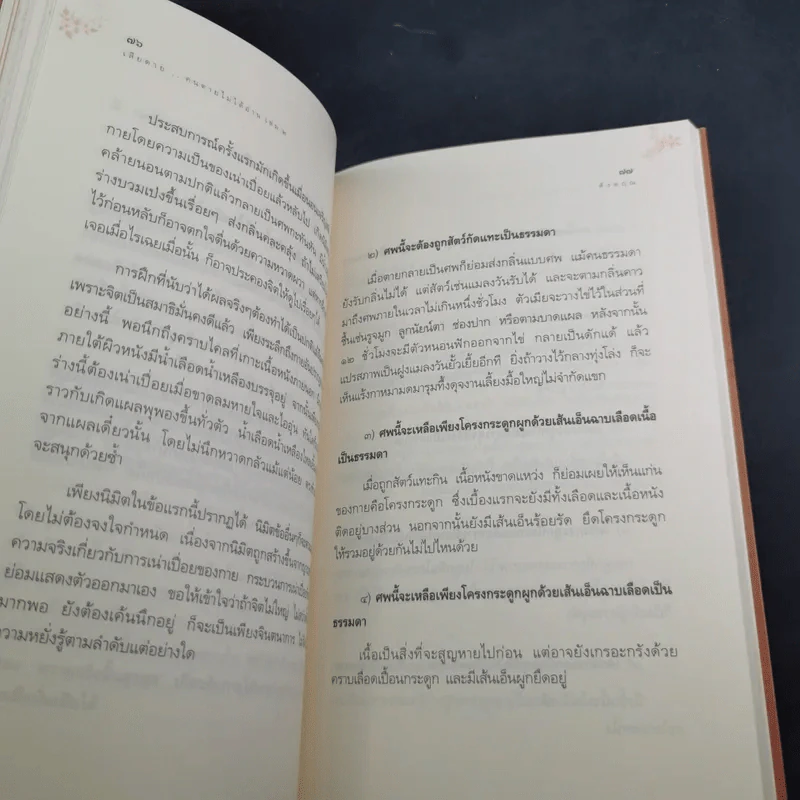 ๗๖
เสียดาย... คนตายไม่ได้อ่าน เล่ม ๒
ประสบการณ์ครั้งแรกมักเกิดขึ้นเมื่อ
กายโดยความเป็นของเน่าเปื่อยแล้วหลับไป
คล้ายนอนตามปกติแล้วกลายเป็นศพกะทันหัน
ร่างบวมเป่งขึ้นเรื่อยๆ ส่งกลิ่นคละคลุ้ง
ไว้ก่อนหลับก็อาจตกใจตื่นด้วยความหวาดผวา
เจอเมื่อไรเฉยเมื่อนั้น ก็อาจประคองจิตให้ดูไปเรื่อยๆ ได้
การฝึกที่นับว่าได้ผลจริงๆต้องทำได้เป็นปกติ
เพราะจิตเป็นสมาธิมั่นคงดีแล้ว เพียงระลึกถึงกาย
อย่างนี้ พอนึกถึงคราบไคลที่เกาะเนื้อหนังภายนอก
ภายใต้ผิวหนังมีน้ำเลือดน้ำเหลืองบรรจุอยู่ จากนั้น
ร่างนี้ต้องเน่าเปื่อยเมื่อขาดลมหายใจและไออุ่น
ราวกับเกิดแผลพุพองขึ้นทั่วตัว น้ำเลือดน้ำเหลืองไหล
จากแผลเดี๋ยวนั้น โดยไม่นึกหวาดกลัวแม้แต่น้อย
จะสนุกด้วยซ้ำ
เพียงนิมิตในข้อแรกนี้ปรากฏได้ นิมิตข้ออื่นๆก็
โดยไม่ต้องจงใจกำหนด เนื่องจากนิมิตถูกสร้างขึ้นจาก
ความจริงเกี่ยวกับการเน่าเปื่อยของกาย กระบวนการเน่าเปื่อย
ย่อมแสดงตัวออกมาเอง ขอให้เข้าใจว่าถ้าจิตไม่ใหญ่ ไม่
มากพอ ยังต้องเค้นนึกอยู่ ก็จะเป็นเพียงจินตนาการ
ความหยั่งรู้ตามลำดับแต่อย่างใด
๗๗
๒) ศพนี้จะต้องถูกสัตว์กัดแทะเป็นธรรมดา
เมื่อตายกลายเป็นศพก็ย่อมส่งกลิ่นแบบศพ แม้คนธรรมดา
ยังรับกลิ่นไม่ได้ แต่สัตว์เช่นแมลงวันรับได้ และจะตามกลิ่นคาว
มาถึงศพภายในเวลาไม่เกินหนึ่งชั่วโมง ตัวเมียจะวางไข่ไว้ในส่วนที่
ชื้นเช่นรูจมูก ลูกนัยน์ตา ช่องปาก หรือตามบาดแผล หลังจากนั้น
๑๒ ชั่วโมงจะมีตัวหนอนฟักออกจากไข่ กลายเป็นดักแด้ แล้ว
แปรสภาพเป็นฝูงแมลงวันยั้วเยี้ยอีกที ยิ่งถ้าวางไว้กลางทุ่งโล่ง ก็จะ
เห็นแร้งกาหมามดมารุมทึ้งดุจงานเลี้ยงมื้อใหญ่ไม่จำกัดแขก
๓) ศพนี้จะเหลือเพียงโครงกระดูกผูกด้วยเส้นเอ็นฉาบเลือดเนื้อ
เป็นธรรมดา
เมื่อถูกสัตว์แทะกิน เนื้อหนังขาดแหว่ง ก็ย่อมเผยให้เห็นแก่น
ของกายคือโครงกระดูก ซึ่งเบื้องแรกจะยังมีทั้งเลือดและเนื้อหนัง
ติดอยู่บางส่วน นอกจากนั้นยังมีเส้นเอ็นร้อยรัด ยึดโครงกระดูก
ให้รวมอยู่ด้วยกันไม่ไปไหนด้วย
๔) ศพนี้จะเหลือเพียงโครงกระดูกผูกด้วยเส้นเอ็นฉาบเลือดเป็น
ธรรมดา
เนื้อเป็นสิ่งที่จะสูญหายไปก่อน แต่อาจยังเกรอะกรังด้วย
คราบเลือดเปื้อนกระดูก และมีเส้นเอ็นผูกยึดอยู่